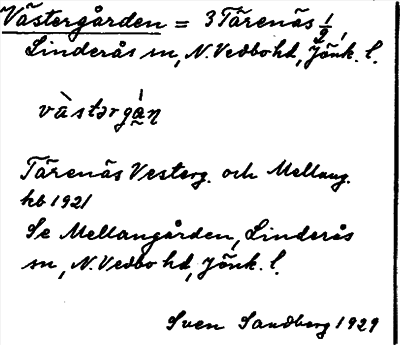 Västergården = 3 Tärenäs 1/2,
Linderås sn, N. Vedbo hd, Jönk. l.
västərgån
Tärenäs Vesterg. och Mellang.
hb 1921
Se Mellangården, Linderås
sn, N. Vedbo hd, Jönk. l.
Sven Sandberg 1929